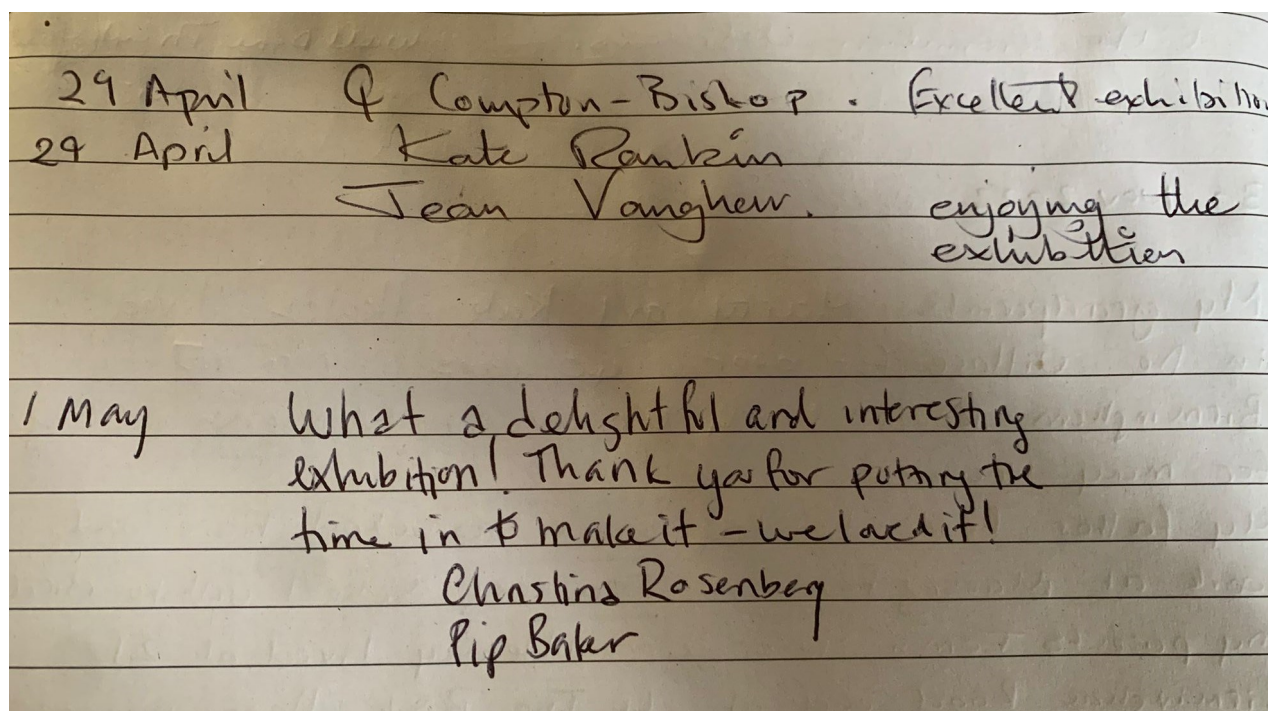 29 April Q Compton-Bishop. Excellent exhibition
29 April Kate Rankin
Jean Vaughan. enjoying the
exhibition
1 May What a delightful and interesting
exhibition! Thank you for putting the
time in to make it - we loved it!
Christina Rosenberg
Pip Baker